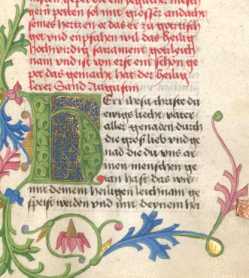 gern peiten sol mit grosser andacht
seines hertzen er das er zu gottisch
get vnd enpfahen wil das heilig
hochwirdig sacrament gotz leich
nam vnd ist von erst ein schon ge
pet das gemacht hat der heilig
lerer Sand Augustin
Herr ihesu christe du
ewigs liecht vater
aller genaden durch
die gros lieb vnd ge
nad die du vns ar
men menschen ge
tan hast das wir
mit deinem heiligen leichnam ge
speist werden vnd mit deynem her